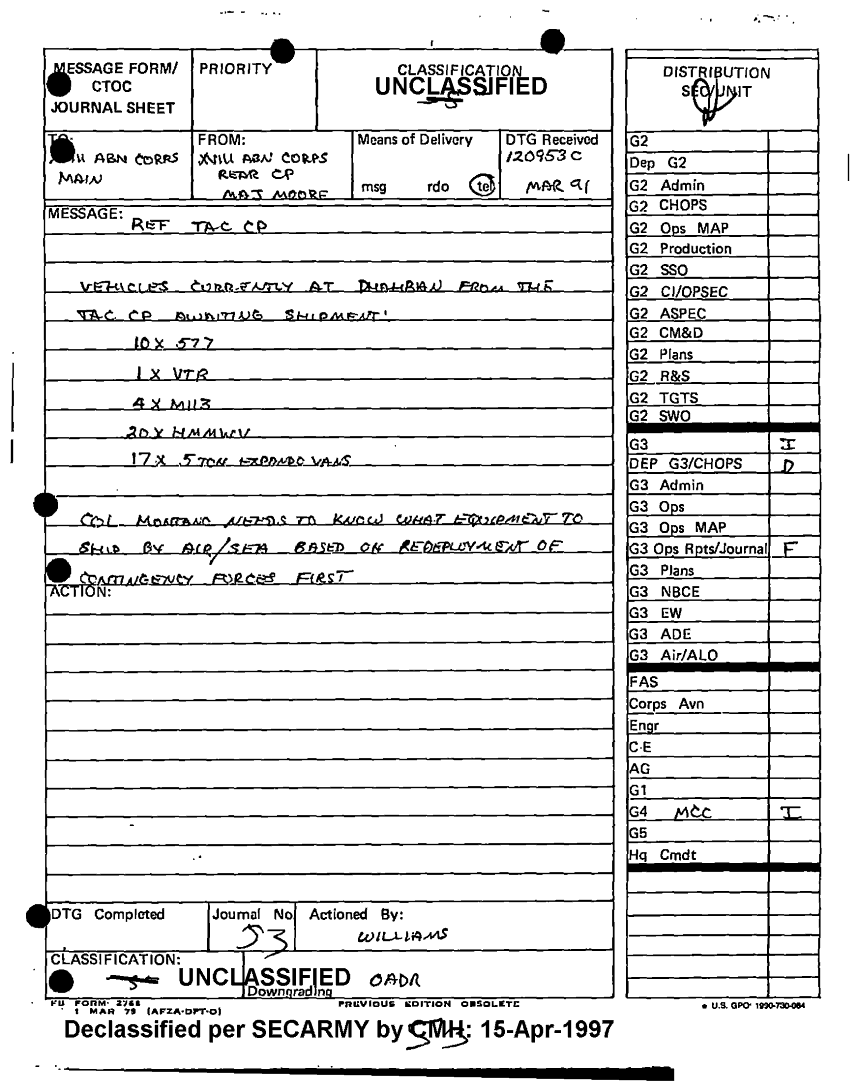 MESSAGE FORM/
CTOC
JOURNAL SHEET
PRIORITY
CLASSIFICATION
UNCLASSIFIED
TO:
XVIII ABN CORPS
MAIN
FROM:
XVIII ABN CORPS
REAR CP
MAJ MOORE
Means of Delivery
msg rdo tel
DTG Received
120953C
MAR 91
MESSAGE:
REF TAC CP
VEHICLES CURRENTLY AT DHAHRAN FROM THE
TAC CP AWAITING SHIPMENT:
10 X 577
1 X VTR
4 X M113
20 X HMMWV
17 X 5 TON EXPANDO VANS
COL MONTANO NEEDS TO KNOW WHAT EQUIPMENT TO
SHIP BY AIR/SEA BASED ON REDEPLOYMENT OF
CONTINGENCY FORCES FIRST
ACTION:
DTG Completed
Journal No
53
Actioned By:
WILLIAMS
CLASSIFICATION:
UNCLASSIFIED OADR
Downgrading
FB FORM 2768
1 MAR 79 (AFZA-DPT-O)
PREVIOUS EDITION OBSOLETE
Declassified per SECARMY by CMH: 15-Apr-1997
DISTRIBUTION
SEC/UNIT
G2
Dep G2
G2 Admin
G2 CHOPS
G2 Ops MAP
G2 Production
G2 SSO
G2 CI/OPSEC
G2 ASPEC
G2 CM&D
G2 Plans
G2 R&S
G2 TGTS
G2 SWO
G3 I
DEP G3/CHOPS D
G3 Admin
G3 Ops
G3 Ops MAP
G3 Ops Rpts/Journal F
G3 Plans
G3 NBCE
G3 EW
G3 ADE
G3 Air/ALO
FAS
Corps Avn
Engr
C-E
AG
G1
G4 MCC I
G5
Hq Cmdt
U.S. GPO: 1990-730-084